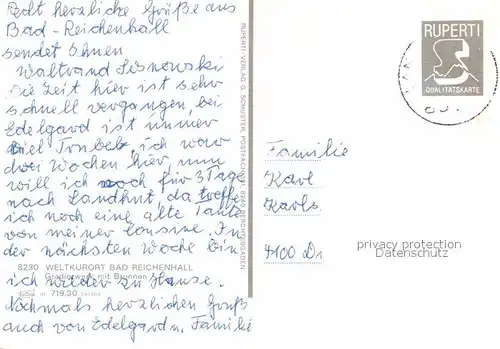 Acht herzliche Grüße aus
Bad-Reichenhall
sendet Ihnen
Waltraud Lesnowski
die Zeit hier ist sehr
schnell vergangen, bei
Edelgard ist immer
viel Trubel, ich war
drei Wochen hier, nun
will ich noch für 3 Tage
nach Landhut, da treffe
ich noch eine alte Tante
von meiner Cousine. In
der nächsten Woche bin
8230 WELTKURORT BAD REICHENHALL
Gradierwerk mit Brunnen
ich wieder zu Hause.
719.30
Nochmals herzlichen Gruß
auch von Edelgard u. Familie
RUPERTI-VERLAG G. SCHUSTER, POSTFACH 8240 BERCHTESGADEN
RUPERTI
QUALITÄTSKARTE
Familie
Karl
Karls
4100 Du
privacy protection
Datenschutz